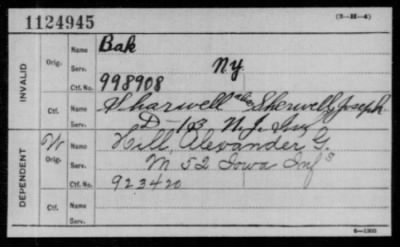 1124945 (3-H-4)
INVALID
Orig. Name Bak
Serv. Ny
Ctf. No. 998908
Ctf. Name Sharwell alias Sherwell, Joseph
Serv. D-13 N.J. Inf
DEPENDENT
Orig. Name Hill, Alexander G.
Serv. M 52 Iowa Inf
Ctf. No. 923420
Ctf. Name
Serv.